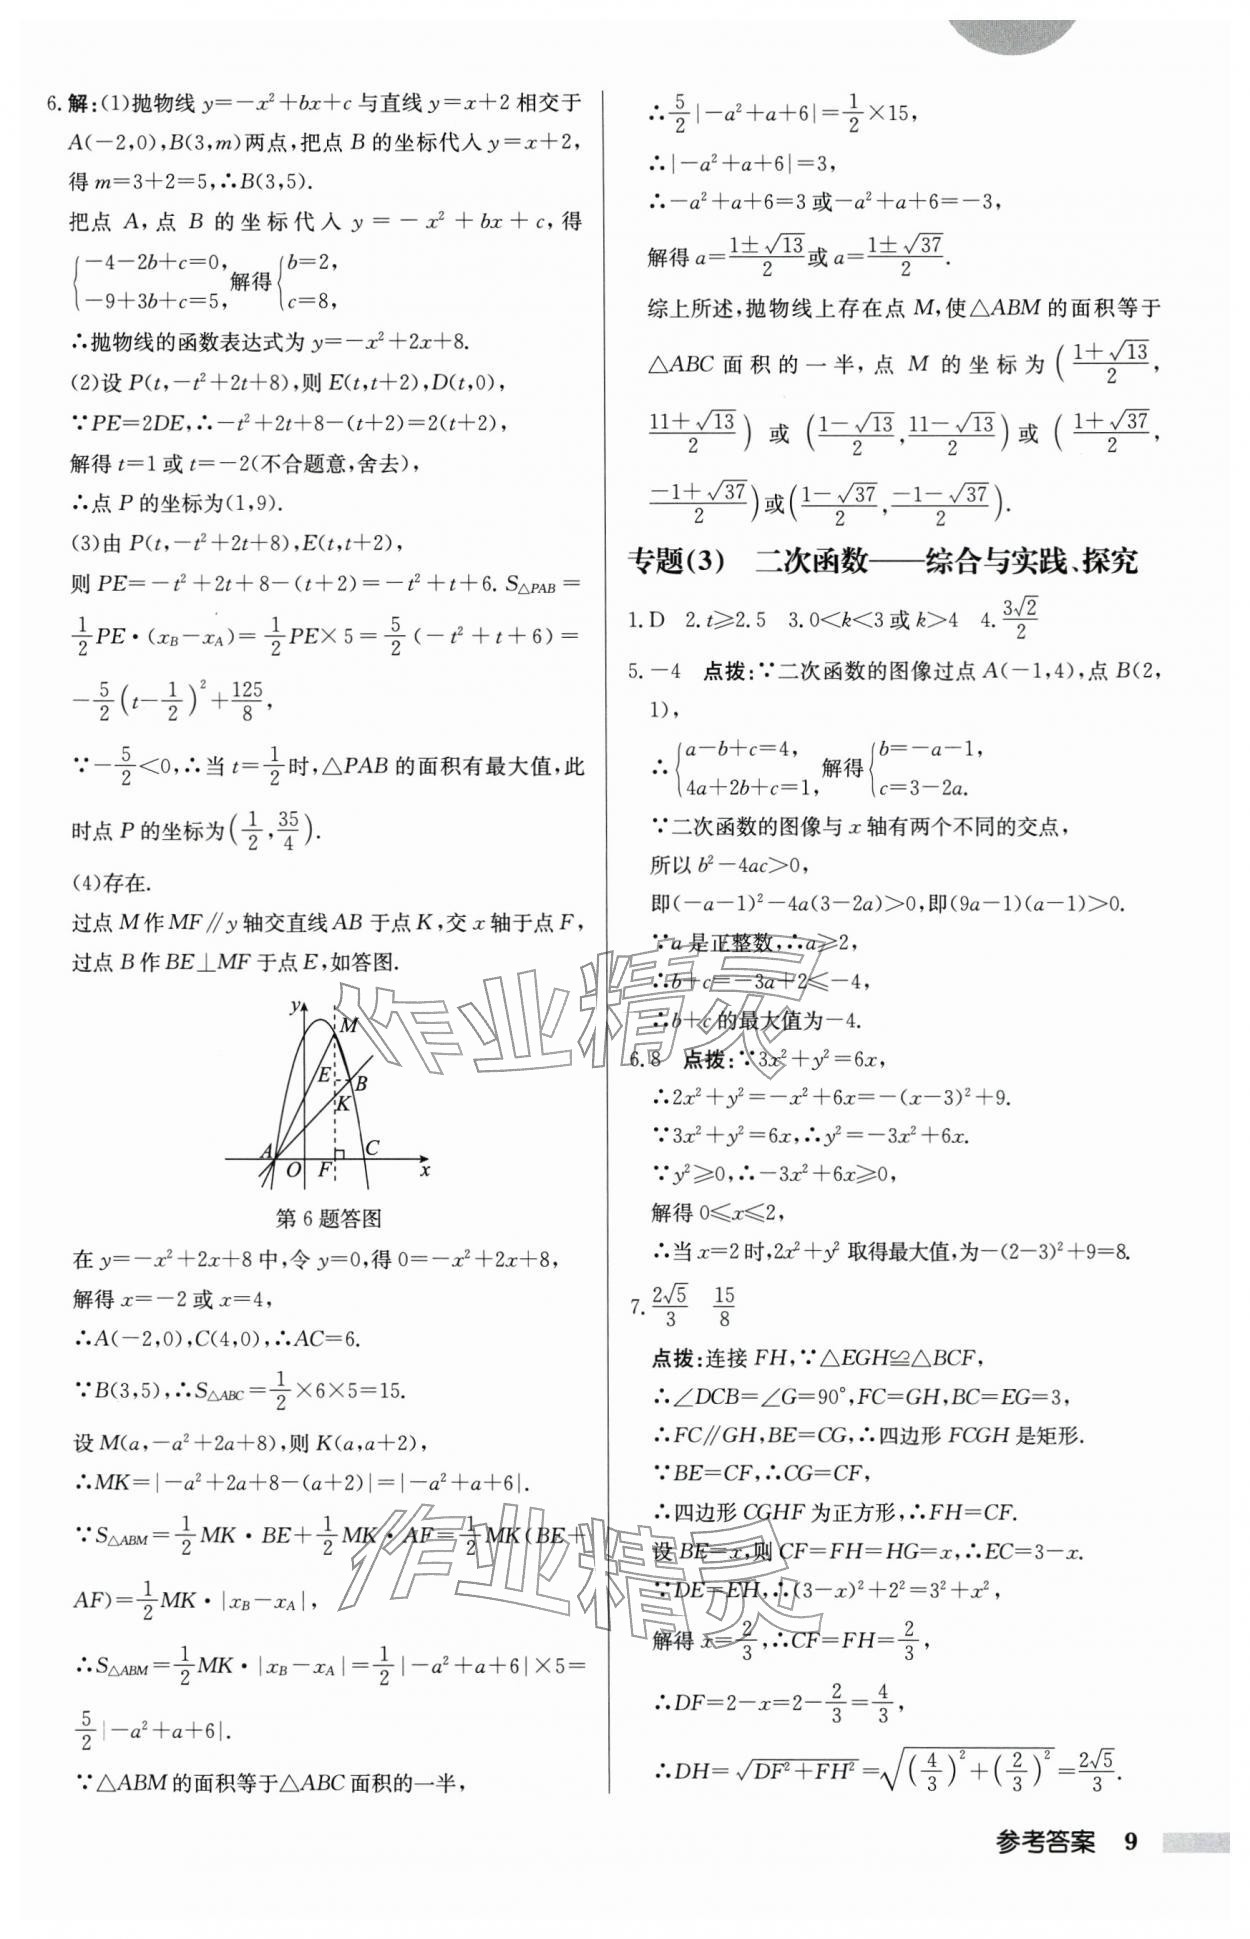 6.解:(1)抛物线 y=-x²+bx+c 与直线 y=x+2 相交于
A(-2,0),B(3,m)两点,把点 B 的坐标代入 y=x+2,
得 m=3+2=5,∴B(3,5).
把点 A,点 B 的坐标代入 y=-x²+bx+c,得
{-4-2b+c=0, -9+3b+c=5, 解得 {b=2, c=8,
∴抛物线的函数表达式为 y=-x²+2x+8.
(2)设 P(t,-t²+2t+8),则 E(t,t+2),D(t,0),
∵PE=2DE,∴-t²+2t+8-(t+2)=2(t+2),
解得 t=1 或 t=-2(不合题意,舍去),
∴点 P 的坐标为(1,9).
(3)由 P(t,-t²+2t+8),E(t,t+2),
则 PE=-t²+2t+8-(t+2)=-t²+t+6. S△PAB=
1/2 PE·(xB-xA)=1/2 PE×5=5/2(-t²+t+6)=
-5/2(t-1/2)²+125/8,
∵-5/2<0,∴当 t=1/2 时,△PAB 的面积有最大值,此
时点 P 的坐标为(1/2,35/4).
(4)存在.
过点 M 作 MF∥y 轴交直线 AB 于点 K,交 x 轴于点 F,
过点 B 作 BE⊥MF 于点 E,如答图.
y
M
E
B
K
A
O
F
C
x
第 6 题答图
在 y=-x²+2x+8 中,令 y=0,得 0=-x²+2x+8,
解得 x=-2 或 x=4,
∴A(-2,0),C(4,0),∴AC=6.
∵B(3,5),∴S△ABC=1/2×6×5=15.
设 M(a,-a²+2a+8),则 K(a,a+2),
∴MK=|-a²+2a+8-(a+2)|=|-a²+a+6|.
∵S△ABM=1/2 MK·BE+1/2 MK·AF=1/2 MK(BE+
AF)=1/2 MK·|xB-xA|,
∴S△ABM=1/2 MK·|xB-xA|=1/2|-a²+a+6|×5=
5/2|-a²+a+6|.
∵△ABM 的面积等于△ABC 面积的一半,
∴5/2|-a²+a+6|=1/2×15,
∴|-a²+a+6|=3,
∴-a²+a+6=3 或-a²+a+6=-3,
解得 a=(1±√13)/2 或 a=(1±√37)/2.
综上所述,抛物线上存在点 M,使△ABM 的面积等于
△ABC 面积的一半,点 M 的坐标为((1+√13)/2,
(11+√13)/2)或((1-√13)/2,(11-√13)/2)或((1+√37)/2,
(-1+√37)/2)或((1-√37)/2,(-1-√37)/2).
专题(3) 二次函数——综合与实践、探究
1.D 2.t≥2.5 3.0<k<3 或 k>4 4.3√2/2
5.-4 点拨:∵二次函数的图像过点 A(-1,4),点 B(2,
1),
∴{a-b+c=4, 4a+2b+c=1, 解得 {b=-a-1, c=3-2a.
∵二次函数的图像与 x 轴有两个不同的交点,
所以 b²-4ac>0,
即(-a-1)²-4a(3-2a)>0,即(9a-1)(a-1)>0.
∵a 是正整数,∴a≥2,
∴b+c=-3a+2≤-4,
∴b+c 的最大值为-4.
6.8 点拨:∵3x²+y²=6x,
∴2x²+y²=-x²+6x=-(x-3)²+9.
∵3x²+y²=6x,∴y²=-3x²+6x.
∵y²≥0,∴-3x²+6x≥0,
解得 0≤x≤2,
∴当 x=2 时,2x²+y² 取得最大值,为-(2-3)²+9=8.
7.2√5/3 15/8
点拨:连接 FH,∵△EGH≌△BCF,
∴∠DCB=∠G=90°,FC=GH,BC=EG=3,
∴FC∥GH,BE=CG,∴四边形 FCGH 是矩形.
∵BE=CF,∴CG=CF,
∴四边形 CGHF 为正方形,∴FH=CF.
设 BE=x,则 CF=FH=HG=x,∴EC=3-x.
∵DE=EH,∴(3-x)²+2²=3²+x²,
解得 x=2/3,∴CF=FH=2/3,
∴DF=2-x=2-2/3=4/3,
∴DH=√(DF²+FH²)=√((4/3)²+(2/3)²)=2√5/3.
作业精灵
作业精灵
参考答案 9